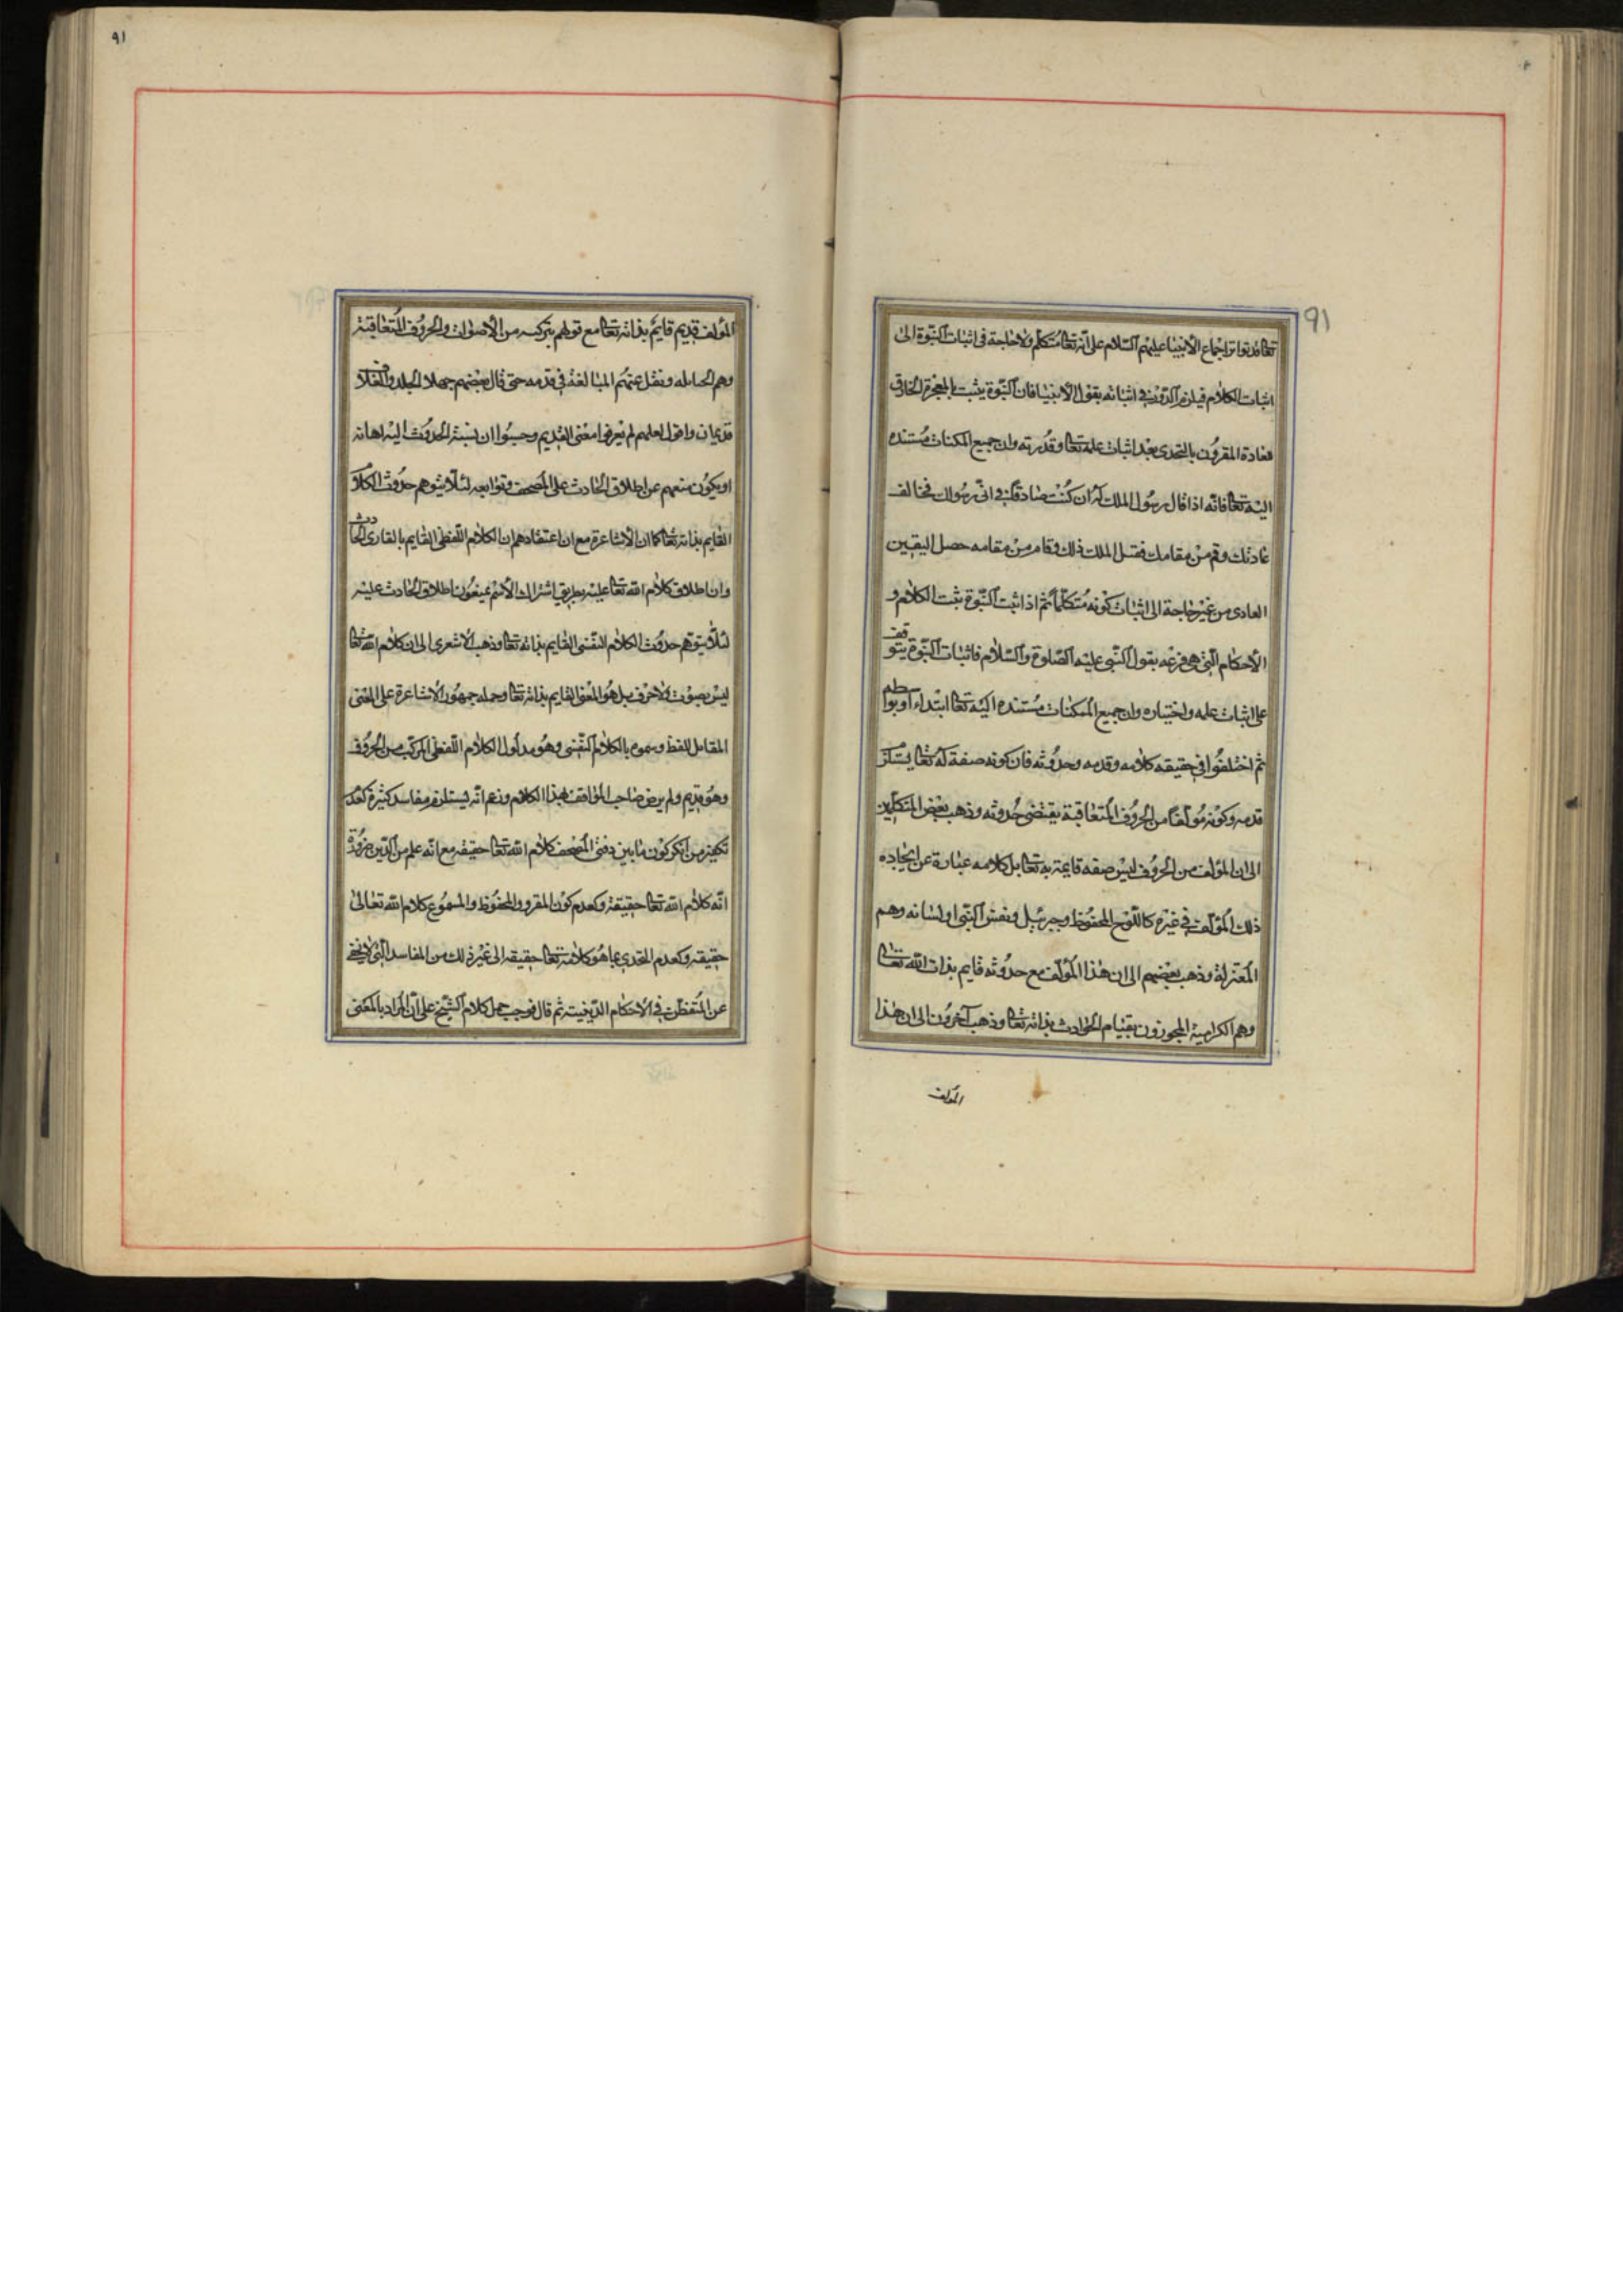 91
تعالى قد تواتر اجماع الأنبيا عليهم السلام على انه تعالى متكلم ولا حاجة فى اثبات النبوة الى
اثبات الكلام فيلزم الدور فى اثباته بقول الأنبيا فان النبوة يثبت بالمعجزة الخارق
معادة المقرون بالتحدى بعد اثبات علمه تعالى وقدرته وان جميع الممكنات مستنده
اليه تعالى فانه اذا قال رسول الملك له ان كنت صادقا فى انى رسولك فخالف
عادتك وقم من مقامك ففعل الملك ذلك وقام من مقامه حصل اليقين
العادى من غير حاجة الى اثبات كونه متكلما ثم اذا ثبت النبوة ثبت الكلام و
الأحكام التى هى فرعه بقول النبى عليه الصلوة والسلام فاثبات النبوة يتوقف
على اثبات علمه واختياره وان جميع الممكنات مستنده اليه تعالى ابتداء او بواسطه
ثم اختلفوا فى حقيقه كلامه وقدمه وحدوثه فان كونه صفة له تعالى يستلزم
قدمه وكونه مؤلفا من الحروف المتعاقبة يقتضى حدوثه وذهب بعض المتكلمين
الى ان المؤلف من الحروف ليس صفه قايمة به تعالى بل كلامه عبارة عن ايجاده
ذلك المؤلف فى غيره كاللوح المحفوظ وجبرئيل ونفس النبى او لسانه وهم
المعتزلة وذهب بعضهم الى ان هذا المؤلف مع حدوثه قايم بذات الله تعالى
وهم الكراميه المجوزون بقيام الحوادث بذاته تعالى وذهب آخرون الى ان هذا
المؤلف
٩١
المؤلف قديم قايم بذاته تعالى مع قولهم بتركبه من الأصوات والحروف المتعاقبة
وهم الحنابله ونقل عنهم المبالغة فى قدمه حتى قال بعضهم جهلا الجلد والغلاف
قديمان واقول لعلهم لم يعرفوا معنى القديم وحسبوا ان نسبة الحدوث اليه اهانه
او يكون منعهم عن اطلاق الحادث على المصحف وتوابعه لئلا يتوهم حدوث الكلام
القايم بذاته تعالى كما ان الأشاعرة مع ان اعتقادهم ان الكلام اللفظى القايم بالقارى الحادث
وان اطلاق كلام الله تعالى عليه بطريق اشتراك الأسم يمنعون اطلاق الحادث عليه
لئلا يتوهم حدوث الكلام النفسى القايم بذاته تعالى وذهب الأشعرى الى ان كلام الله تعالى
ليس بصوت ولا حرف بل هو المعنى القايم بذاته تعالى وحمله جمهور الأشاعرة على المعنى
المقابل للفظ وسموه بالكلام النفسى وهو مدلول الكلام اللفظى المركب من الحروف
وهو قديم ولم يرض صاحب المواقف بهذا الكلام وزعم انه يستلزم مفاسد كثيرة كعدم
تكفير من انكر كون ما بين دفتى المصحف كلام الله تعالى حقيقه مع انه علم من الدين ضرورة
انه كلام الله تعالى حقيقة وكعدم كون المقرو والمحفوظ والمسموع كلام الله تعالى
حقيقه وكعدم التحدى بما هو كلامه تعالى حقيقه الى غير ذلك من المفاسد التى لا يخفى
عن المتفطن فى الاحكام الدينية ثم قال فوجب حمل كلام الشيخ على ان المراد بالمعنى